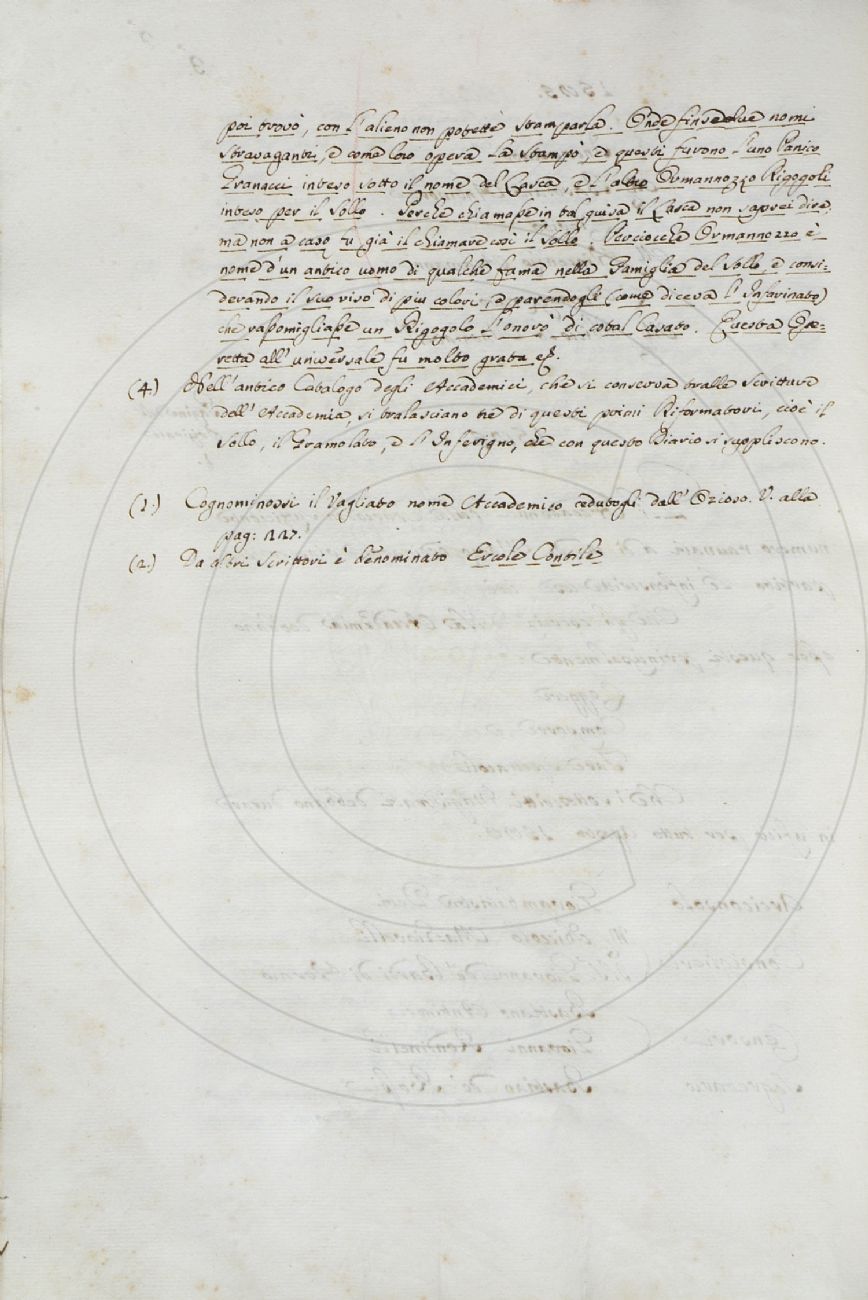 poi trovò, con l'alieno non potette stamparla. Onde finse due nomi
stravaganti, e come loro opera la stampò, e questi furono l'uno Panico
Granacci inteso sotto il nome del Lasca, e l'altro Ormannozzo Rigogoli
inteso per il Sollo. Perche chiamasse in tal guisa il Lasca non saprei dire,
ma non a caso fu già il chiamare così il Sollo. Perciocche Ormannozzo è
nome d'un antico uomo di qualche fama nella Famiglia del Sollo, e consi-
derando il suo viso di più colori, e parendogli (come diceva l'Infarinato)
che rassomigliasse un Rigogolo l'onorò di cotal Casato. Questa Ope-
retta all'universale fu molto grata ec.
(4.) Nell'antico Catalogo degli Accademici, che si conserva tralle Scritture
dell'Accademia, si tralasciano tre di questi primi Riformatori, cioè il
Sollo, il Gramolato, e l'Inferigno, che con questo Diario si suppliscono.
(1.) Cognominossi il Vagliato nome Accademico cedutogli dall'Ozioso. V. alla
pag: 127.
(2.) Da altri Scrittori è denominato Ercole Contile